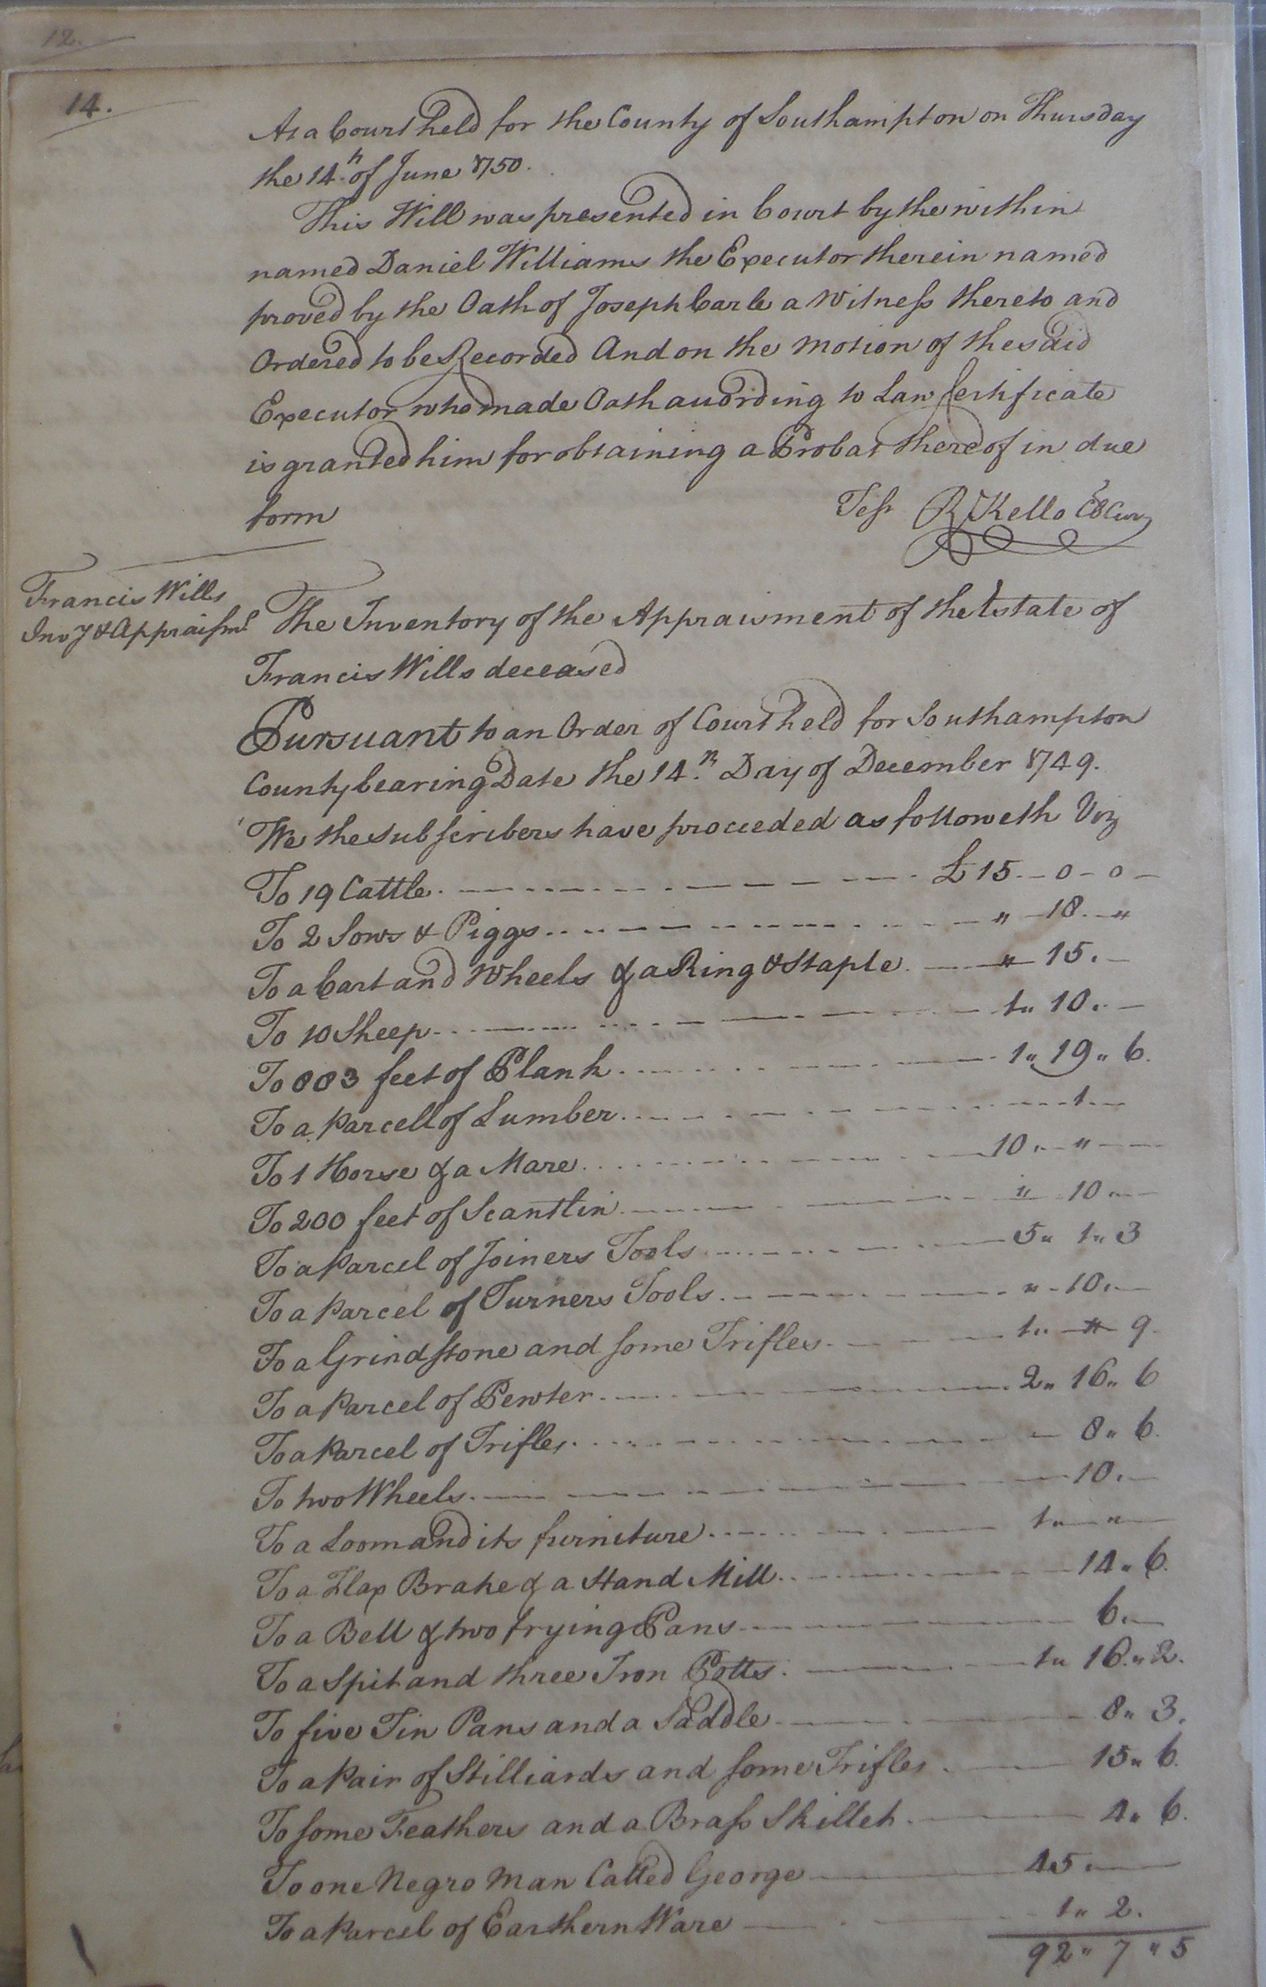 12.
14.
At a Court held for the County of Southampton on Thursday
the 14th. of June 1750.
This Will was presented in Court by the within
named Daniel Williams the Executor therein named
proved by the Oath of Joseph Carle a Witness thereto and
Ordered to be Recorded And on the Motion of the said
Executor who made Oath according to Law Certificate
is granted him for obtaining a Probat thereof in due
form
Test R Kello Cl Cur
Francis Wills
Invy & Appraismt
The Inventory of the Appraisment of the Estate of
Francis Wills deceased
Pursuant to an Order of Court held for Southampton
County bearing Date the 14.th Day of December 1749.
We the subscribers have proceeded as followeth Viz
To 19 Cattle. £ 15 - 0 - 0
To 2 Sows & Piggs " 18 "
To a Cart and Wheels & a Ring & Staple " 15.
To 10 Sheep 1 " 10 "
To 883 feet of Plank 1 " 19 " 6.
To a Parcell of Lumber 1
To 1 Horse & a Mare 10 " "
To 200 feet of Scantlin " 10 "
To a Parcel of Joiners Tools 5 " 1 " 3
To a Parcel of Turners Tools " 10 "
To a Grindstone and some Trifles 1 " " 9
To a Parcel of Pewter 2 " 16 " 6
To a Parcel of Trifles 8 " 6
To two Wheels 10 "
To a Loom and its furniture 1 " "
To a Flax Brake & a Hand Mill 14 " 6.
To a Bell & two frying Pans 6 "
To a Spit and three Iron Potts 1 " 16 " 2.
To five Tin Pans and a Saddle 8 " 3.
To a Pair of Stilliards and some Trifles 15 " 6.
To some Feathers and a Brass Skillet 4 " 6.
To one Negro Man Called George 45 "
To a Parcel of Earthern Ware 1 " 2.
92 " 7 " 5